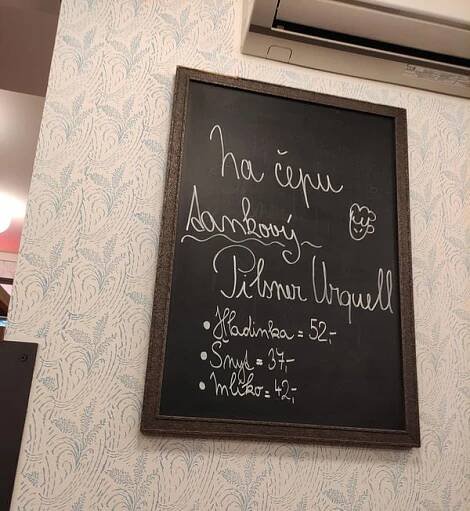 na čepu
tankový
Pilsner Urquell
• Hladinka = 52,-
• Šnyt = 37,-
• Mlíko = 42,-